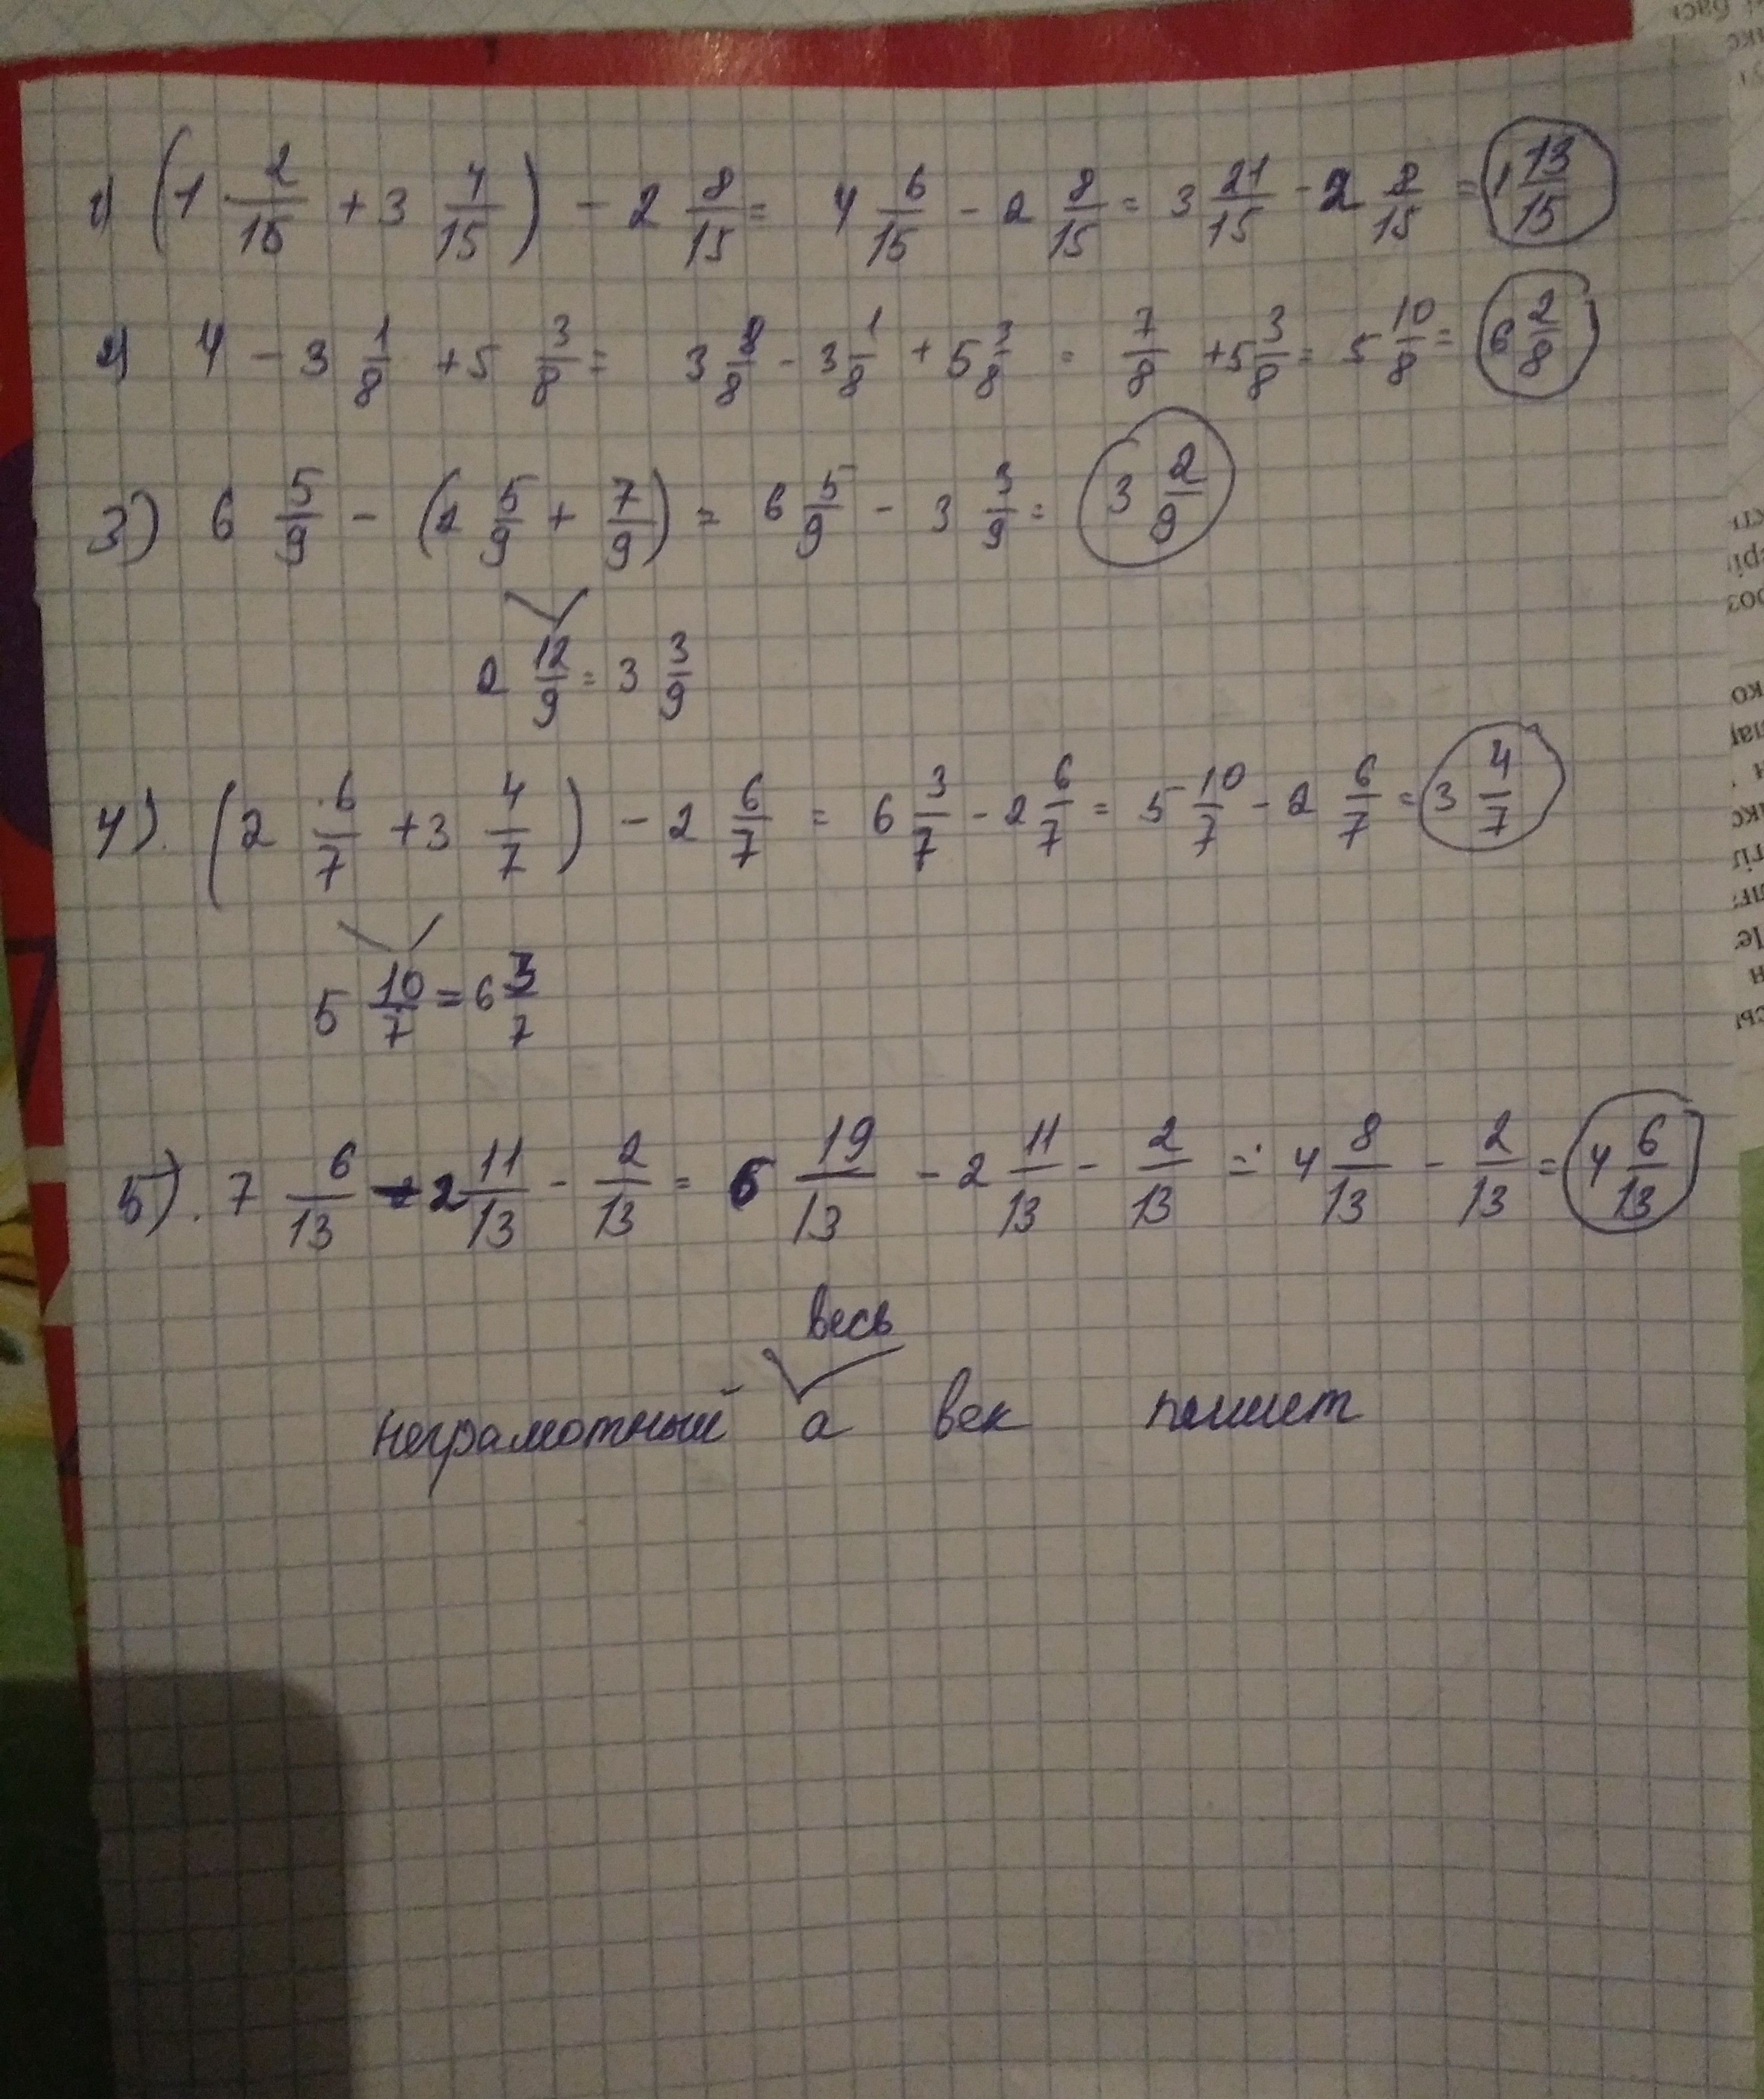 1) (1 2/15 + 3 4/15) - 2 8/15 = 4 6/15 - 2 8/15 = 3 21/15 - 2 8/15 = 1 13/15
2) 4 - 3 1/8 + 5 3/8 = 3 8/8 - 3 1/8 + 5 3/8 = 7/8 + 5 3/8 = 5 10/8 = 6 2/8
3) 6 5/9 - (2 5/9 + 7/9) = 6 5/9 - 3 3/9 = 3 2/9
2 12/9 = 3 3/9
4). (2 6/7 + 3 4/7) - 2 6/7 = 6 3/7 - 2 6/7 = 5 10/7 - 2 6/7 = 3 4/7
5 10/7 = 6 3/7
5). 7 6/13 - 2 11/13 - 2/13 = 6 19/13 - 2 11/13 - 2/13 = 4 8/13 - 2/13 = 4 6/13
весь
неграмотный а век пишет